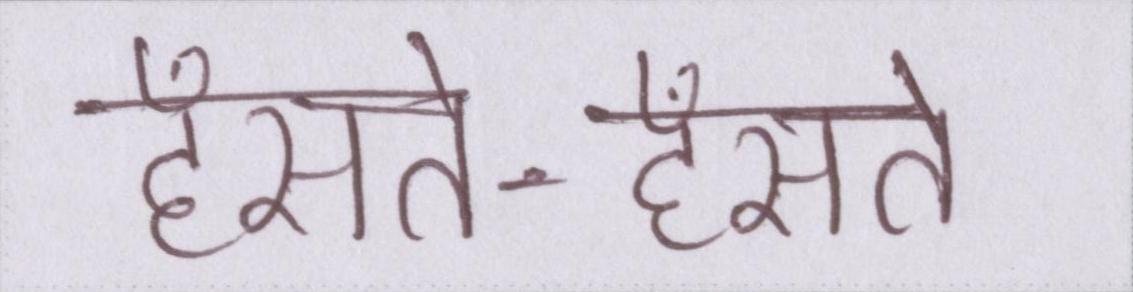 हँसते-हँसते